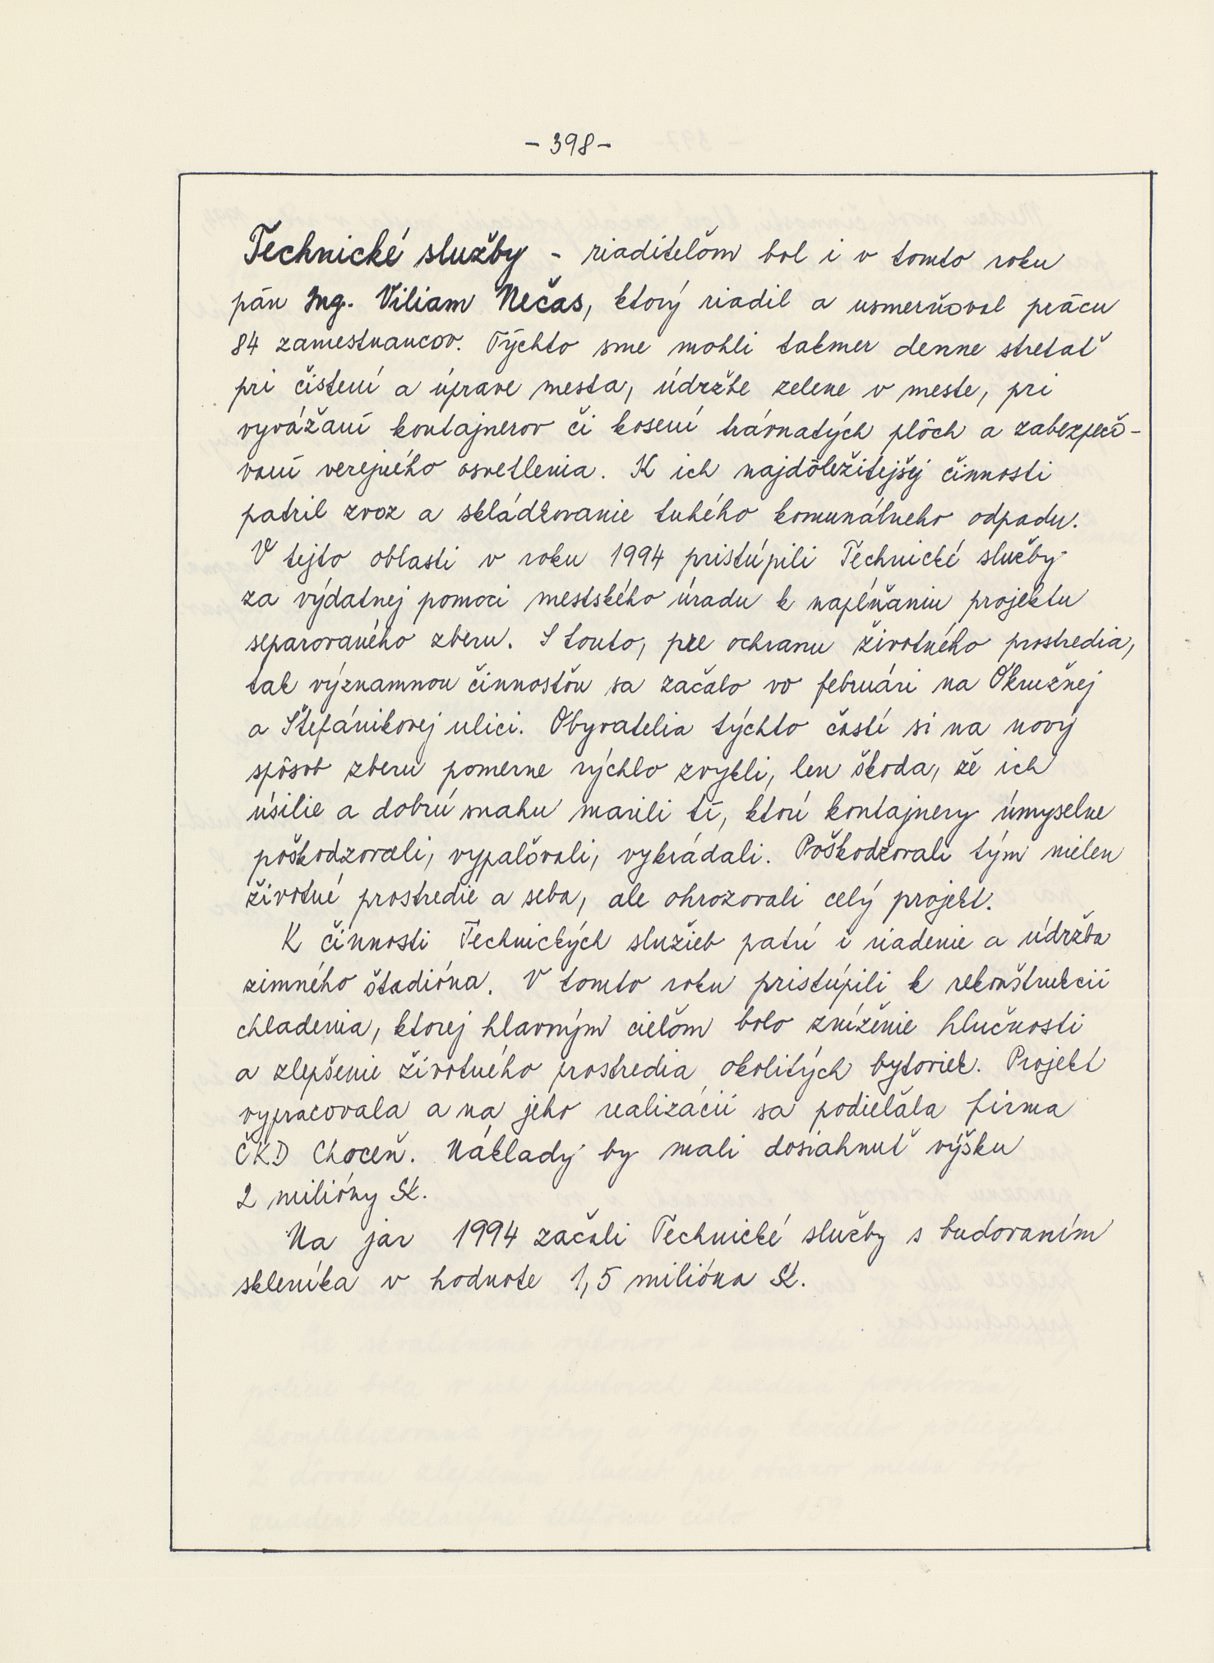 - 398 -
Technické služby - riaditeľom bol i v tomto roku
pán Ing. Viliam Nečas, ktorý riadil a usmerňoval prácu
84 zamestnancov. Týchto sme mohli takmer denne stretať
pri čistení a úprave mesta, údržbe zelene v meste, pri
vyvážaní kontajnerov či kosení trávnatých plôch a zabezpečo-
vaní verejného osvetlenia. K ich najdôležitejšej činnosti
patril zvoz a skládkovanie tuhého komunálneho odpadu.
V tejto oblasti v roku 1994 pristúpili Technické služby
za výdatnej pomoci mestského úradu k napĺňaniu projektu
separovaného zberu. S touto, pre ochranu životného prostredia,
tak významnou činnosťou sa začalo vo februári na Okružnej
a Štefánikovej ulici. Obyvatelia týchto častí si na nový
spôsob zberu pomerne rýchlo zvykli, len škoda, že ich
úsilie a dobrú snahu marili tí, ktorí kontajnery úmyselne
poškodzovali, vypaľovali, vykrádali. Poškodzovali tým nielen
životné prostredie a seba, ale ohrozovali celý projekt.
K činnosti Technických služieb patrí i riadenie a údržba
zimného štadióna. V tomto roku pristúpili k rekonštrukcii
chladenia, ktorej hlavným cieľom bolo zníženie hlučnosti
a zlepšenie životného prostredia okolitých bytoviek. Projekt
vypracovala a na jeho realizácií sa podieľala firma
ČKD Choceň. Náklady by mali dosiahnuť výšku
2 milióny Sk.
Na jar 1994 začali Technické služby s budovaním
skleníka v hodnote 1,5 milióna Sk.